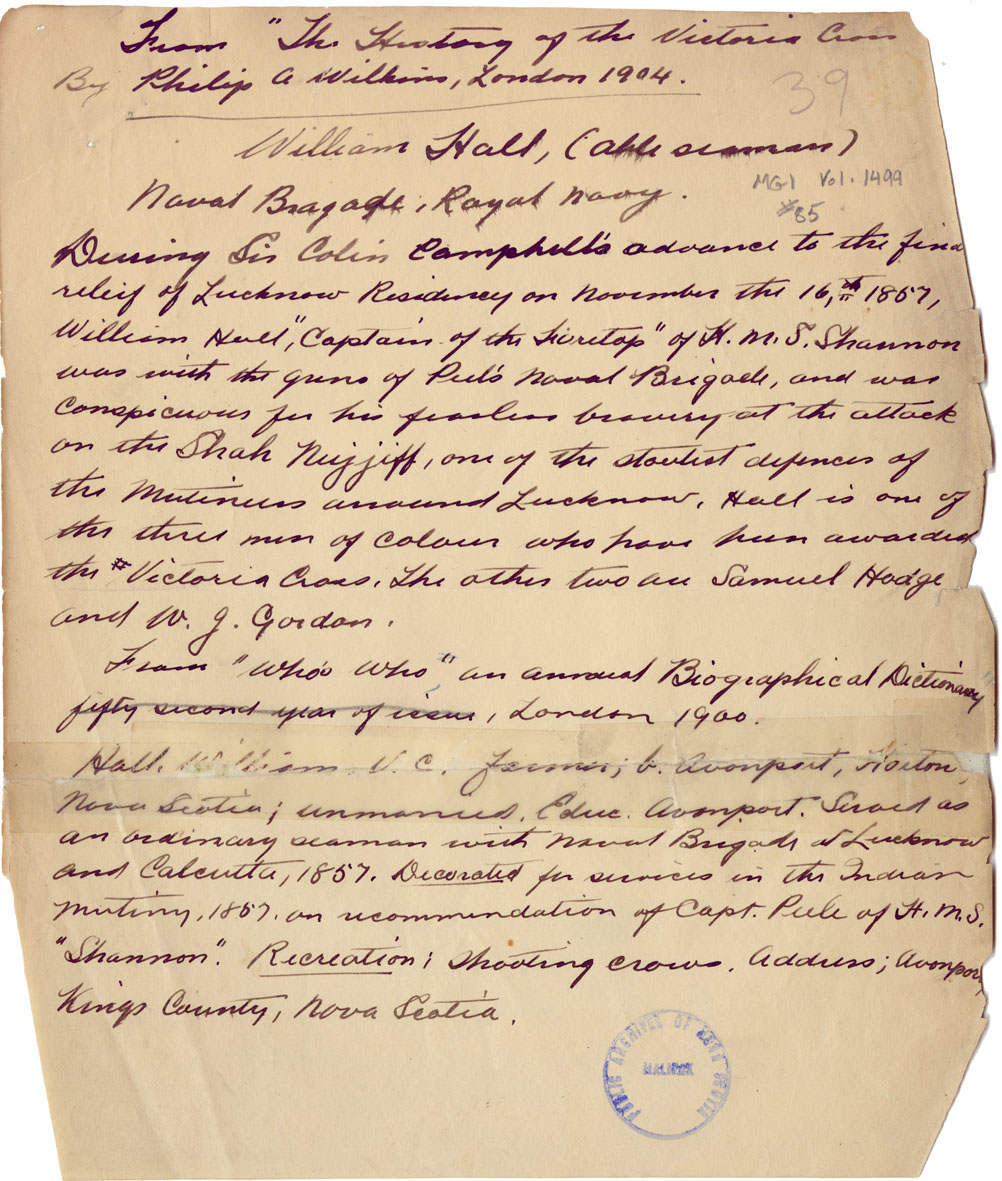 From "The History of the Victoria Cross
By Philip A Wilkins, London 1904.
39
William Hall, (able seaman)
MG1 Vol. 1499
#85
Naval Bragade, Royal Navy.
During Sir Colin Campbell's advance to the final
releif of Lucknow Residency on November the 16,th 1857,
William Hall, "Captain of the Foretop" of H. M. S. Shannon
was with the guns of Peel's Naval Brigade, and was
conspicuous for his fearless bravery at the attack
on the Shah Nujjiff, one of the stoutest defences of
the Mutineers around Lucknow. Hall is one of
the three men of colour who have been awarded
the Victoria Cross. The other two are Samuel Hodge
and W. J. Gordon.
From "Who's Who" an annual Biographical Dictionary"
fifty second year of issue, London 1900.
Hall. William V. C. Farmer; b. Avonport, Horton,
Nova Scotia; unmarried. Educ. Avonport. Served as
an ordinary seaman with Naval Brigade at Lucknow
and Calcutta, 1857. Decorated for services in the Indian
Mutiny, 1857. on recommendation of Capt. Peele of H. M. S.
"Shannon". Recreation; shooting crows. Address; Avonport,
Kings County, Nova Scotia.
PUBLIC ARCHIVES OF NOVA SCOTIA
HALIFAX